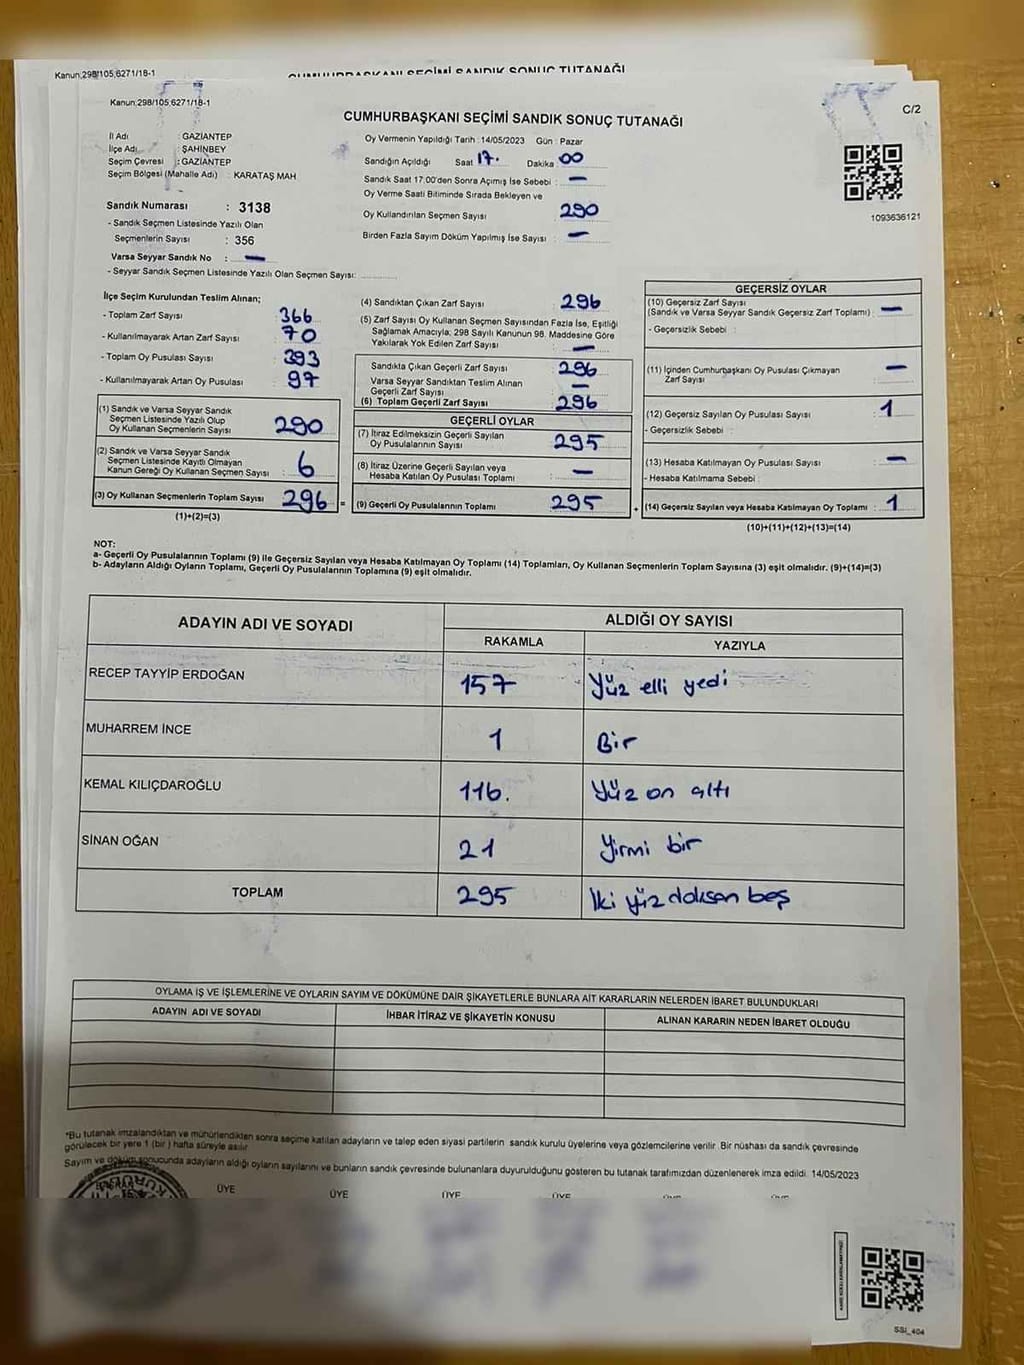 Kanun,298/105,6271/18-1
CUMHURBAŞKANI SEÇİMİ SANDIK SONUÇ TUTANAĞI
Kanun,298/105,6271/18-1
C/2
CUMHURBAŞKANI SEÇİMİ SANDIK SONUÇ TUTANAĞI
İl Adı : GAZİANTEP
İlçe Adı : ŞAHİNBEY
Seçim Çevresi : GAZİANTEP
Seçim Bölgesi (Mahalle Adı) : KARATAŞ MAH
Sandık Numarası : 3138
- Sandık Seçmen Listesinde Yazılı Olan
Seçmenlerin Sayısı : 356
Varsa Seyyar Sandık No : —
- Seyyar Sandık Seçmen Listesinde Yazılı Olan Seçmen Sayısı:
Oy Vermenin Yapıldığı Tarih : 14/05/2023 Gün : Pazar
Sandığın Açıldığı Saat 17. Dakika 00
Sandık Saat 17:00'den Sonra Açımış İse Sebebi : —
Oy Verme Saati Bitiminde Sırada Bekleyen ve
Oy Kullandırılan Seçmen Sayısı 290
Birden Fazla Sayım Döküm Yapılmış İse Sayısı : —
1093636121
İlçe Seçim Kurulundan Teslim Alınan;
- Toplam Zarf Sayısı : 366
- Kullanılmayarak Artan Zarf Sayısı : 70
- Toplam Oy Pusulası Sayısı : 393
- Kullanılmayarak Artan Oy Pusulası : 97
(1) Sandık ve Varsa Seyyar Sandık
Seçmen Listesinde Yazılı Olup
Oy Kullanan Seçmenlerin Sayısı 290
(2) Sandık ve Varsa Seyyar Sandık
Seçmen Listesinde Kayıtlı Olmayan
Kanun Gereği Oy Kullanan Seçmen Sayısı : 6
(3) Oy Kullanan Seçmenlerin Toplam Sayısı 296 =
(1)+(2)=(3)
(4) Sandıktan Çıkan Zarf Sayısı : 296
(5) Zarf Sayısı Oy Kullanan Seçmen Sayısından Fazla İse, Eşitliği
Sağlamak Amacıyla, 298 Sayılı Kanunun 98. Maddesine Göre
Yakılarak Yok Edilen Zarf Sayısı : —
Sandıkta Çıkan Geçerli Zarf Sayısı : 296
Varsa Seyyar Sandıktan Teslim Alınan
Geçerli Zarf Sayısı : —
(6) Toplam Geçerli Zarf Sayısı : 296
GEÇERLİ OYLAR
(7) İtiraz Edilmeksizin Geçerli Sayılan
Oy Pusulalarının Sayısı : 295
(8) İtiraz Üzerine Geçerli Sayılan veya
Hesaba Katılan Oy Pusulası Toplamı : —
(9) Geçerli Oy Pusulalarının Toplamı : 295 +
GEÇERSİZ OYLAR
(10) Geçersiz Zarf Sayısı
(Sandık ve Varsa Seyyar Sandık Geçersiz Zarf Toplamı) : —
- Geçersizlik Sebebi :
(11) İçinden Cumhurbaşkanı Oy Pusulası Çıkmayan
Zarf Sayısı : —
(12) Geçersiz Sayılan Oy Pusulası Sayısı : 1
- Geçersizlik Sebebi :
(13) Hesaba Katılmayan Oy Pusulası Sayısı : —
- Hesaba Katılmama Sebebi :
(14) Geçersiz Sayılan veya Hesaba Katılmayan Oy Toplamı : 1
(10)+(11)+(12)+(13)=(14)
NOT:
a- Geçerli Oy Pusulalarının Toplamı (9) ile Geçersiz Sayılan veya Hesaba Katılmayan Oy Toplamı (14) Toplamları, Oy Kullanan Seçmenlerin Toplam Sayısına (3) eşit olmalıdır. (9)+(14)=(3)
b- Adayların Aldığı Oyların Toplamı, Geçerli Oy Pusulalarının Toplamına (9) eşit olmalıdır.
ADAYIN ADI VE SOYADI ALDIĞI OY SAYISI
RAKAMLA YAZIYLA
RECEP TAYYİP ERDOĞAN 157 Yüz elli yedi
MUHARREM İNCE 1 Bir
KEMAL KILIÇDAROĞLU 116. Yüz on altı
SİNAN OĞAN 21 Yirmi bir
TOPLAM 295 İki yüz doksan beş
OYLAMA İŞ VE İŞLEMLERİNE VE OYLARIN SAYIM VE DÖKÜMÜNE DAİR ŞİKAYETLERLE BUNLARA AİT KARARLARIN NELERDEN İBARET BULUNDUKLARI
ADAYIN ADI VE SOYADI İHBAR İTİRAZ VE ŞİKAYETİN KONUSU ALINAN KARARIN NEDEN İBARET OLDUĞU
*Bu tutanak imzalandıktan ve mühürlendikten sonra seçime katılan adayların ve talep eden siyasi partilerin sandık kurulu üyelerine veya gözlemcilerine verilir. Bir nüshası da sandık çevresinde
görülecek bir yere 1 (bir ) hafta süreyle asılır.
Sayım ve döküm sonucunda adayların aldığı oyların sayılarını ve bunların sandık çevresinde bulunanlara duyurulduğunu gösteren bu tutanak tarafımızdan düzenlenerek imza edildi. 14/05/2023
BAŞKAN ÜYE ÜYE ÜYE ÜYE ÜYE ÜYE
SSİ_404